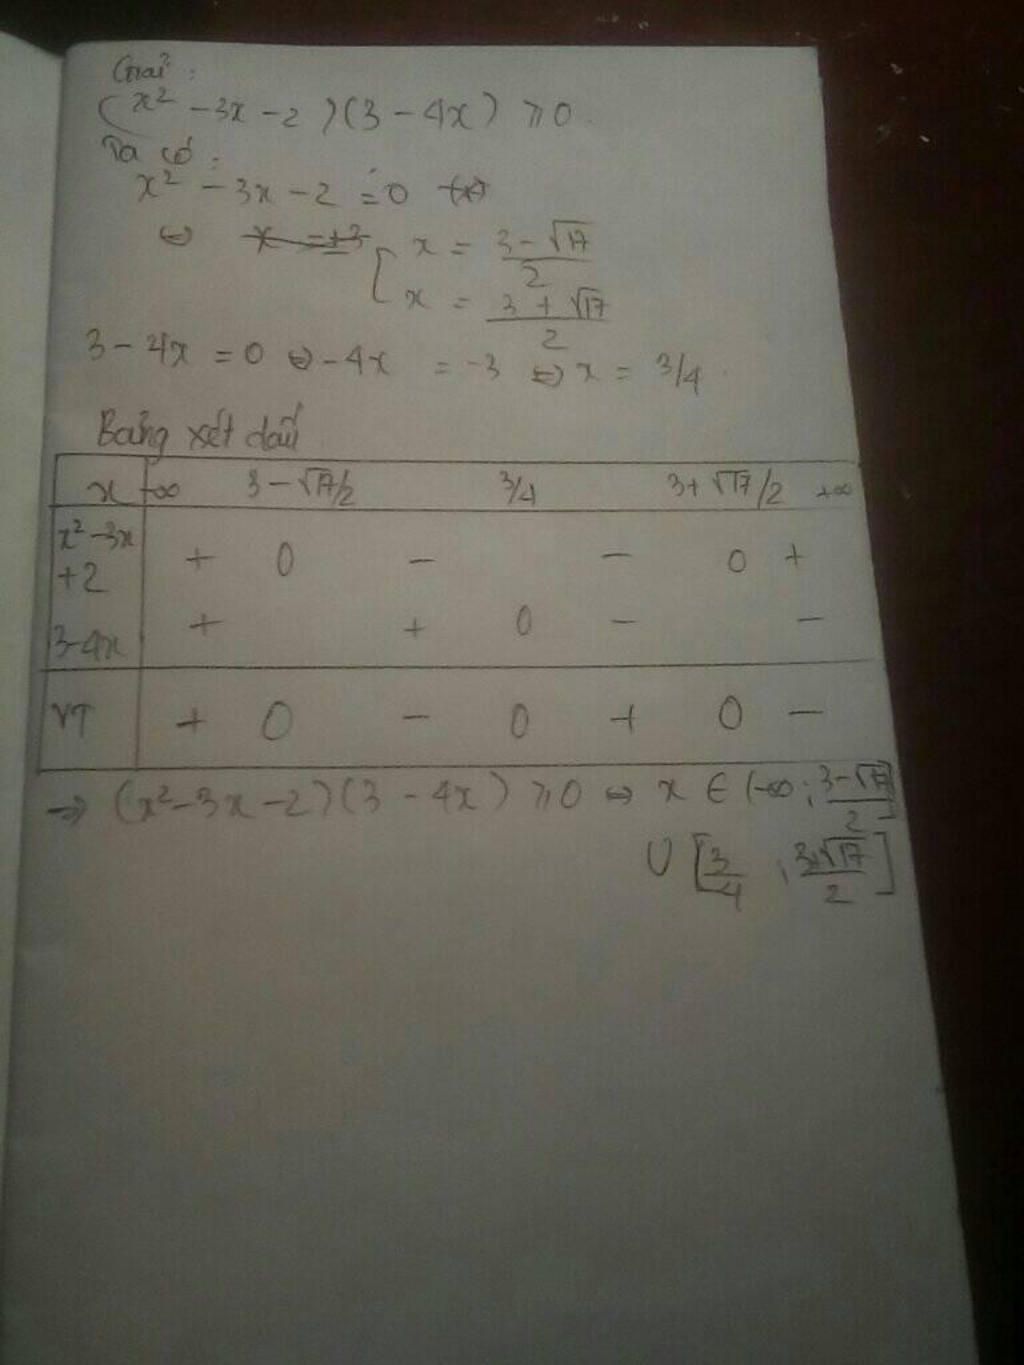 Giải :
(x² - 3x - 2)(3 - 4x) ≥ 0.
Ta có :
x² - 3x - 2 = 0
⇔ [ x = (3 - √17)/2
x = (3 + √17)/2
3 - 4x = 0 ⇔ -4x = -3 ⇔ x = 3/4.
Bảng xét dấu
x -∞ 3 - √17/2 3/4 3 + √17/2 +∞
x² - 3x
+ 2 + 0 - - 0 +
3-4x + + 0 - -
VT + 0 - 0 + 0 -
→ (x² - 3x - 2)(3 - 4x) ≥ 0 ⇔ x ∈ (-∞ ; (3 - √17)/2]
∪ [3/4 ; (3 + √17)/2]